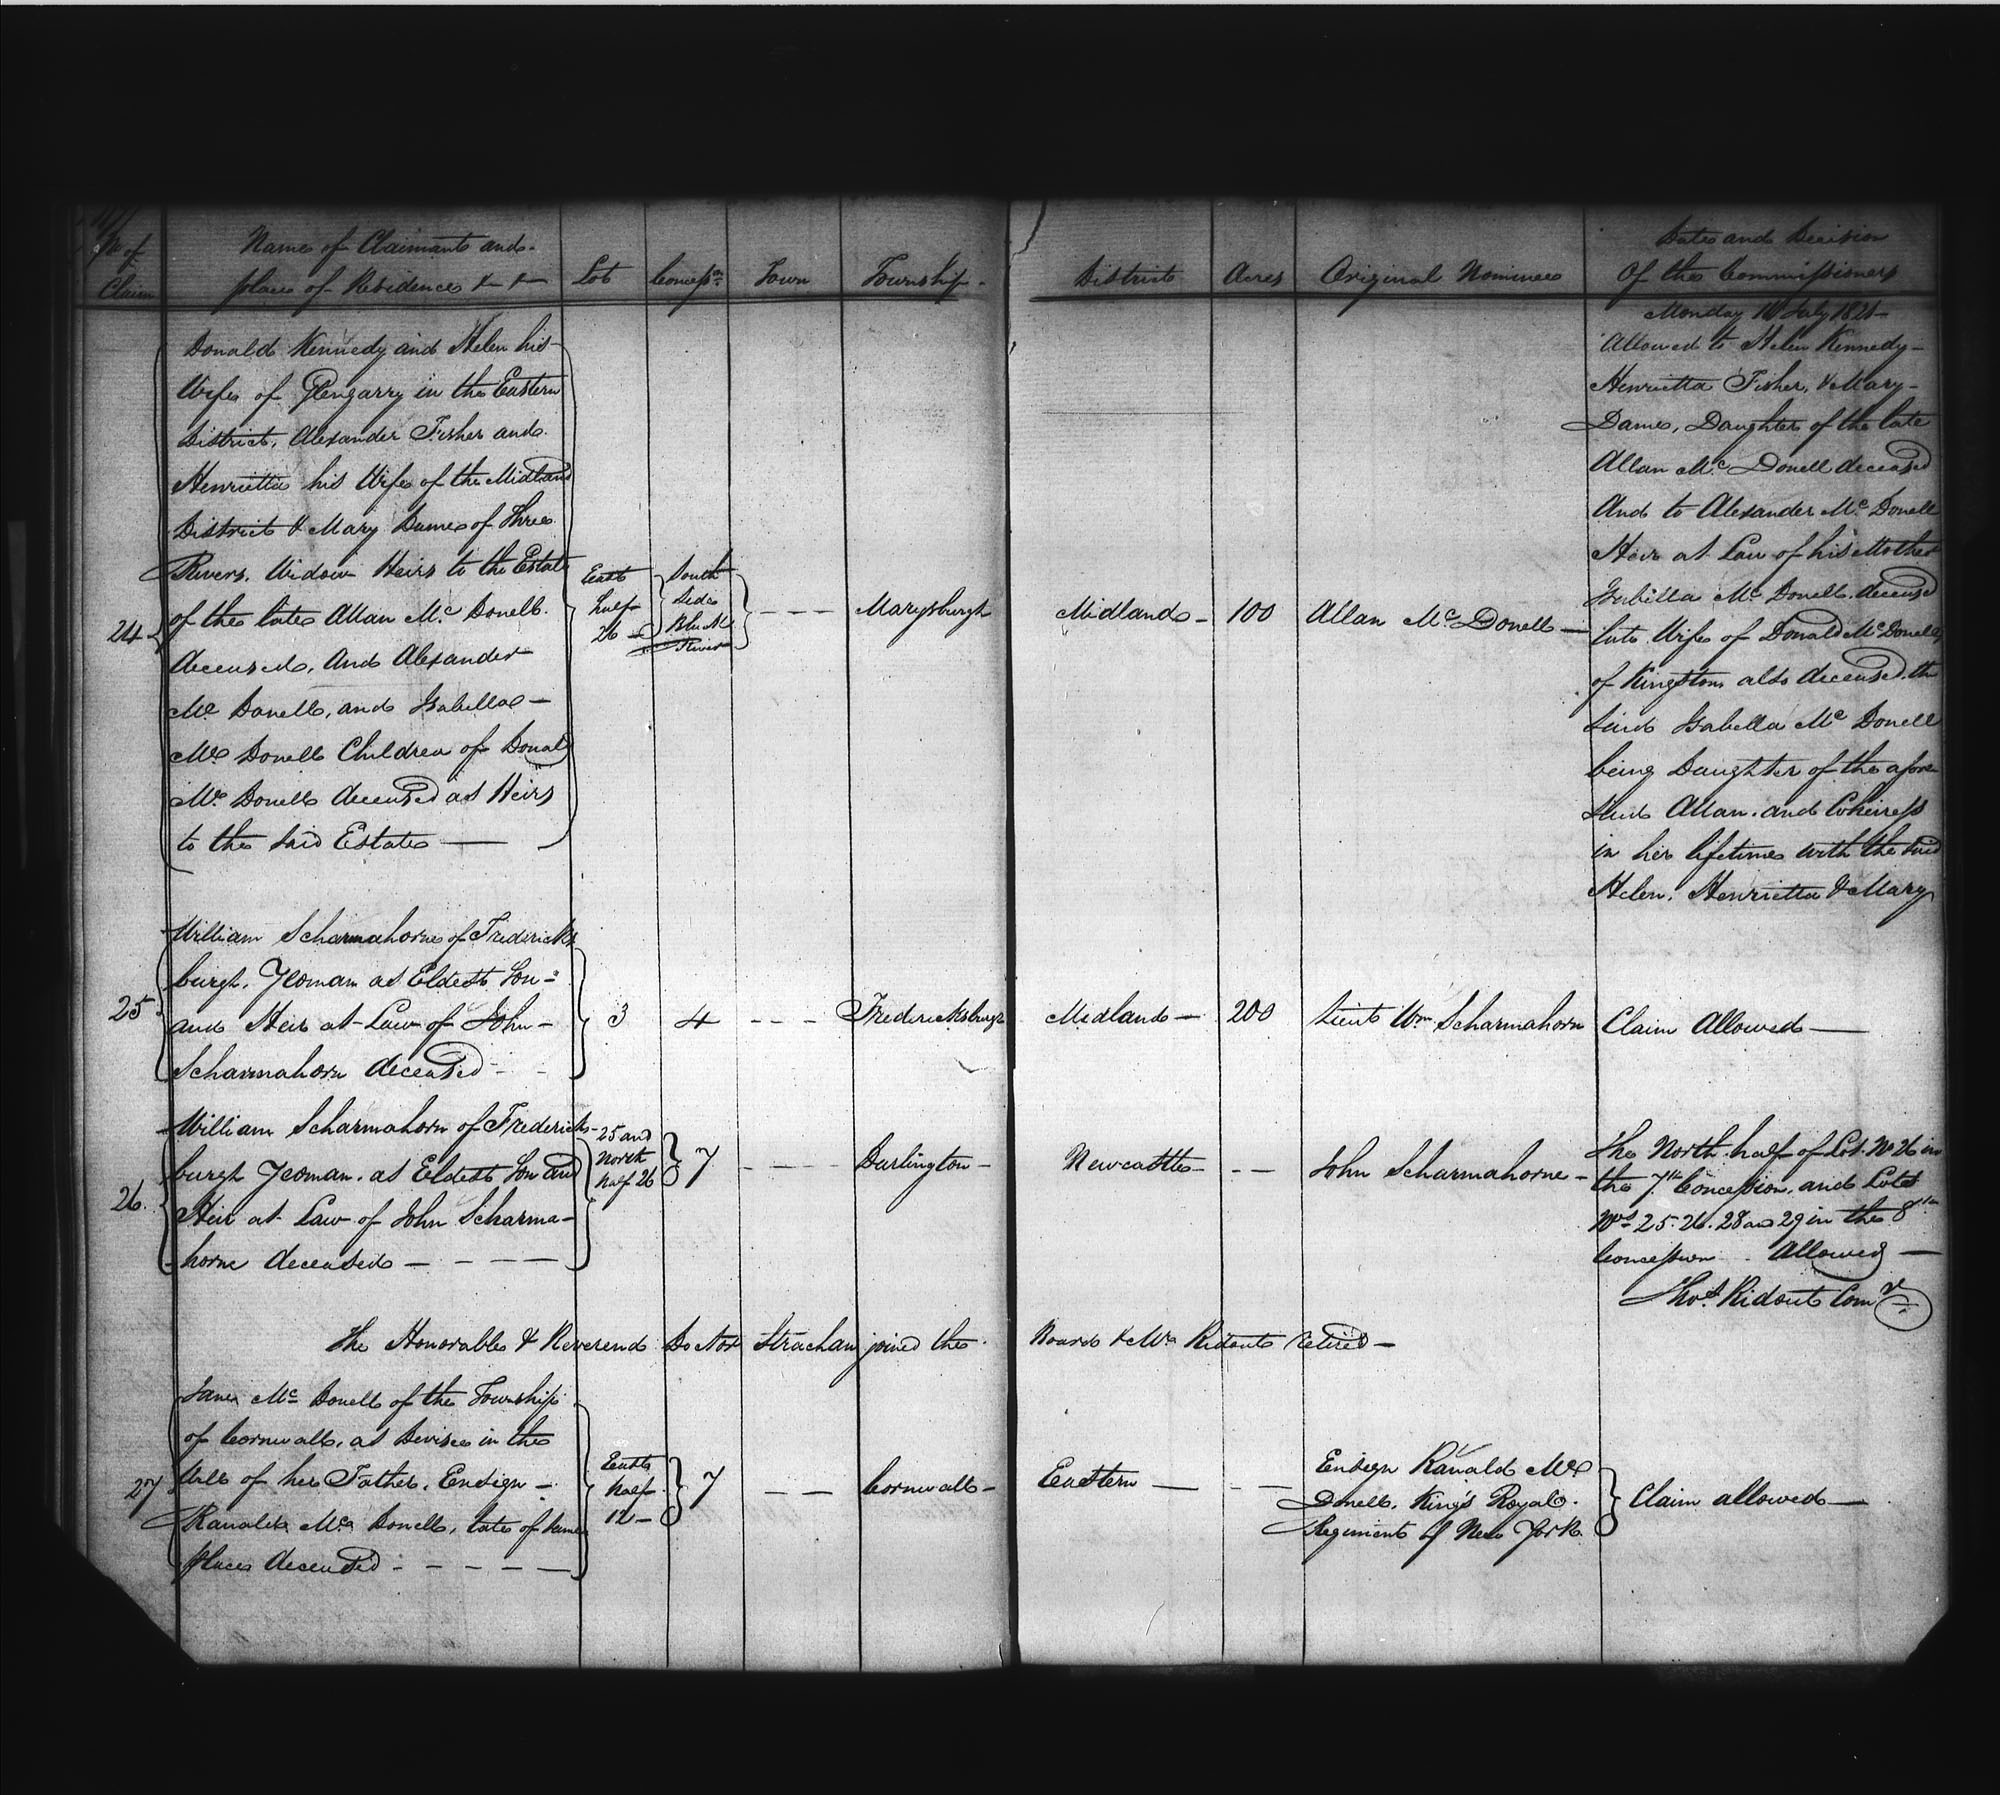 No of Claim
Names of Claimants and
places of Residence & &
Lot
Concessn
Town
Township
District
Acres
Original Nominee
Date and Decision
Of the Commissioners
Monday July 1821
24
Donald Kennedy and Helen his
Wife of Glengarry in the Eastern
District, Alexander Fisher and
Henrietta his Wife of the Midland
District & Mary Dame of Three
Rivers, Widow Heirs to the Estate
of the late Allan Mc Donell
deceased, And Alexander
Mc Donell, and Isabella
Mc Donell Children of Donald
Mc Donell deceased as Heirs
to the said Estate
East
half
26
South
Side
Black
River
Marysburgh
Midland
100
Allan Mc Donell
Allowed to Helen Kennedy
Henrietta Fisher, & Mary
Dame, Daughters of the late
Allan Mc Donell deceased
And to Alexander Mc Donell
Heir at Law of his Mother
Isabella Mc Donell deceased
late Wife of Donald Mc Donell
of Kingston also deceased the
said Isabella Mc Donell
being Daughter of the afore
said Allan and Coheiress
in her lifetime with the said
Helen, Henrietta & Mary
25
William Scharmahorne of Fredericks
burgh, Yeoman as Eldest Son
and Heir at Law of John
Scharmahorn deceased
3
4
Fredericksburgh
Midland
200
Lieut Wm Scharmahorn
Claim Allowed
26
William Scharmahorn of Fredericks
burgh Yeoman as Eldest Son and
Heir at Law of John Scharma-
horne deceased
25 and
North
half 26
7
Darlington
Newcastle
John Scharmahorne
The North half of Lot No 26 in
the 7th Concession, and Lots
Nos 25. 26. 28 and 29 in the 8th
Concession Allowed
Thos Ridout Comr
The Honorable & Reverend Doctor Strachan joined the Board & Mr Ridout retired
27
Jane Mc Donell of the Township
of Cornwall, as Devisee in the
Will of her Father, Ensign
Ranald Mc Donell, late of same
place deceased
East
half
12
7
Cornwall
Eastern
Ensign Ranald Mc
Donell, King's Royal
Regiment of New York
Claim allowed